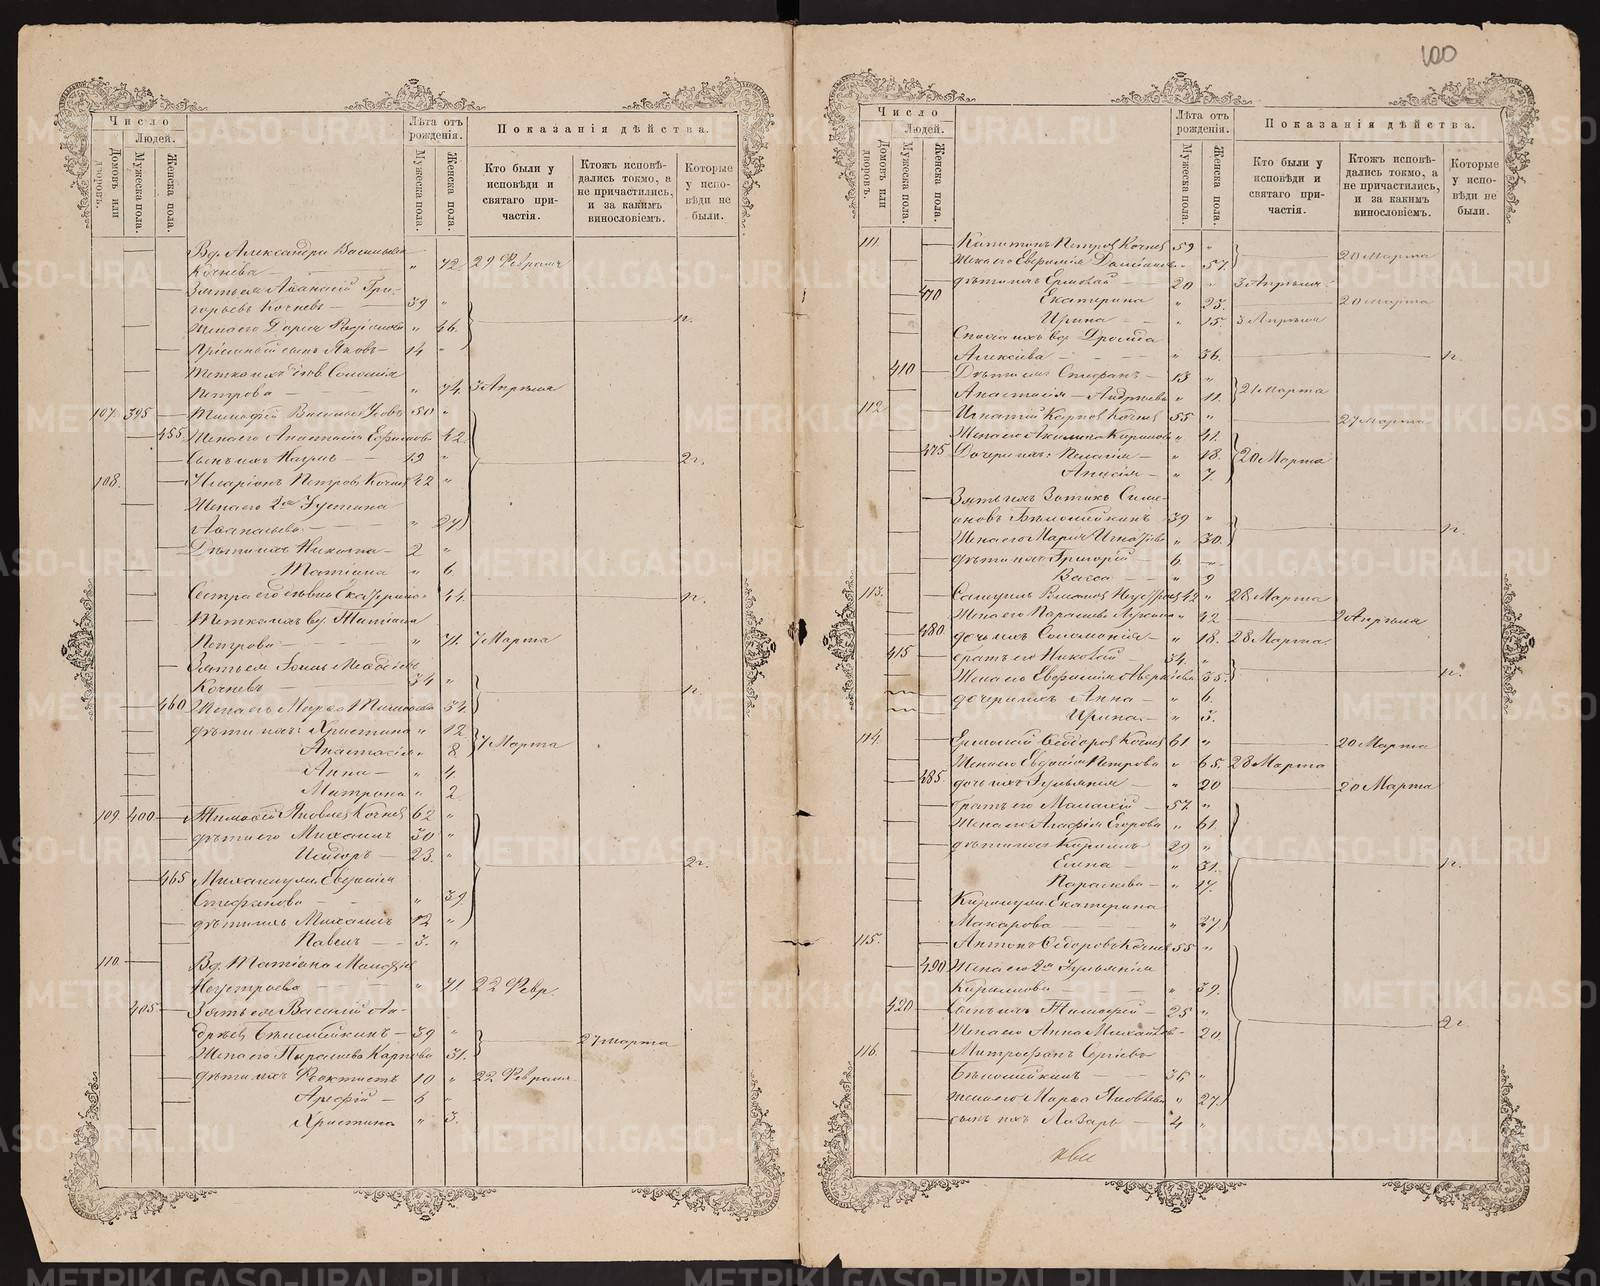 100
Число
Людей.
Домовъ или дворовъ.
Мужеска пола.
Женска пола.
Лѣта отъ рожденія.
Мужеска пола.
Женска пола.
Показанія дѣйства.
Кто были у исповѣди и святаго причастія.
Ктожъ исповѣдались токмо, а не причастились, и за какимъ винословіемъ.
Которые у исповѣди не были.
Вд. Александра Васильева
Кочнева — „ 72 29 Февраля
Зять ея Аѳанасій Гри-
горьевъ Кочневъ — 39 „
Жена его Дарья „ 46. 1г.
Пріемный сынъ Яковъ — 14 „
Тетка ихъ
Петрова — „ 74. 3 Апрѣля
107. 395 Тимофей Васильевъ 50 „
455 Жена его Анастасія „ 42.
Сынъ ихъ Наумъ — 19 „ 2г.
108. Иларіонъ Петровъ Кочневъ 42 „
Жена его 2я Устинья
Аѳанасьева — „ 27
Дѣти ихъ Никола — 2 „
Татіана „ 6
Сестра его „ 44 1г.
Тетка ихъ вд. Татіана
Петрова — „ 71. 7 Марта
Зять ея
Кочневъ — 34 „ 1г.
460 Жена его Марѳа Тимофеева 34.
дѣти ихъ: Христина „ 12
Анастасія „ 8 7 Марта
Анна — „ 4.
Матрона „ 2
109. 400 Тимофей Яковлевъ Кочневъ 62 „
дѣти его Михаилъ 30 „
Исидоръ — 23. „ 2г.
465 Михаилу ж. Евгенія
Стефанова — „ 39
дѣти ихъ Михаилъ 12 „
Павелъ — 3. „
110. Вд. Татіана
Неустроева „ 71. 22 Февр.
405 Зять ея Василій Ан-
дреевъ Бѣломойкинъ — 39 „
27 Марта
Жена его Парасковья Карпова 31.
дѣти ихъ Ѳеоктистъ 10 „ 22 Февраля
Арефій — 6 „
Христина „ 3.
Число
Людей.
Домовъ или дворовъ.
Мужеска пола.
Женска пола.
Лѣта отъ рожденія.
Мужеска пола.
Женска пола.
Показанія дѣйства.
Кто были у исповѣди и святаго причастія.
Ктожъ исповѣдались токмо, а не причастились, и за какимъ винословіемъ.
Которые у исповѣди не были.
111. Капитонъ Петровъ Кочневъ 59 „
20 Марта
Жена его Евфимія „ 57.
дѣти ихъ Ермолай — 20 „ 3 Апрѣля
470 Екатерина „ 23. 20 Марта
Ирина „ 15. 3 Апрѣля
Сноха ихъ вд.
Алексіева — „ 36. 1г.
410 Дѣти ея Стефанъ — 13 „
21 Марта
Анастасія — Андреева „ 11.
112. Игнатій Карповъ Кочневъ 55 „ 27 Марта
Жена его Акилина „ 41.
475 Дочери ихъ: Пелагія — „ 18. 20 Марта
Анисія — „ 7
Зять ихъ Зотикъ Симе-
оновъ Бѣломойкинъ 39 „ 1г.
Жена его Марія Игнатьева „ 30.
дѣти ихъ Григорій 6. „
Васса — „ 9
113. 42 „ 28 Марта
Жена его Парасковья „ 42 2 Апрѣля
480 дочь ихъ Соломонія — „ 18. 28 Марта
415 братъ его Николай — 34. „
1г.
Жена его Евфимія Аверкіева 35.
дочери ихъ Анна — „ 6.
Ирина — „ 3.
114. Ермолай Ѳедоровъ Кочневъ 61 „ 20 Марта
Жена его Евдокія Петрова „ 65. 28 Марта
485 дочь ихъ Іуліанія — „ 20 20 Марта
братъ его Малахій — 57. „
Жена его Агафія Егорова „ 61.
дѣти ихъ Кириллъ — 29 „
Елена „ 31. 1г.
Параскева — „ 17.
Кирилу ж. Екатерина
Макарова — „ 27
115. Антонъ Ѳедоровъ Кочневъ 55 „
490 Жена его 2я Іуліанія
Кирилова — „ 39.
420 Сынъ ихъ Тимофей — 25 „
2г.
Жена его Анна Михайлова — 20.
116. Митрофанъ Сергіевъ
Бѣломойкинъ — 36 „
Жена его Марѳа Яковлева „ 27
сынъ ихъ Лазарь — 4 „
METRIKI.GASO-URAL.RU